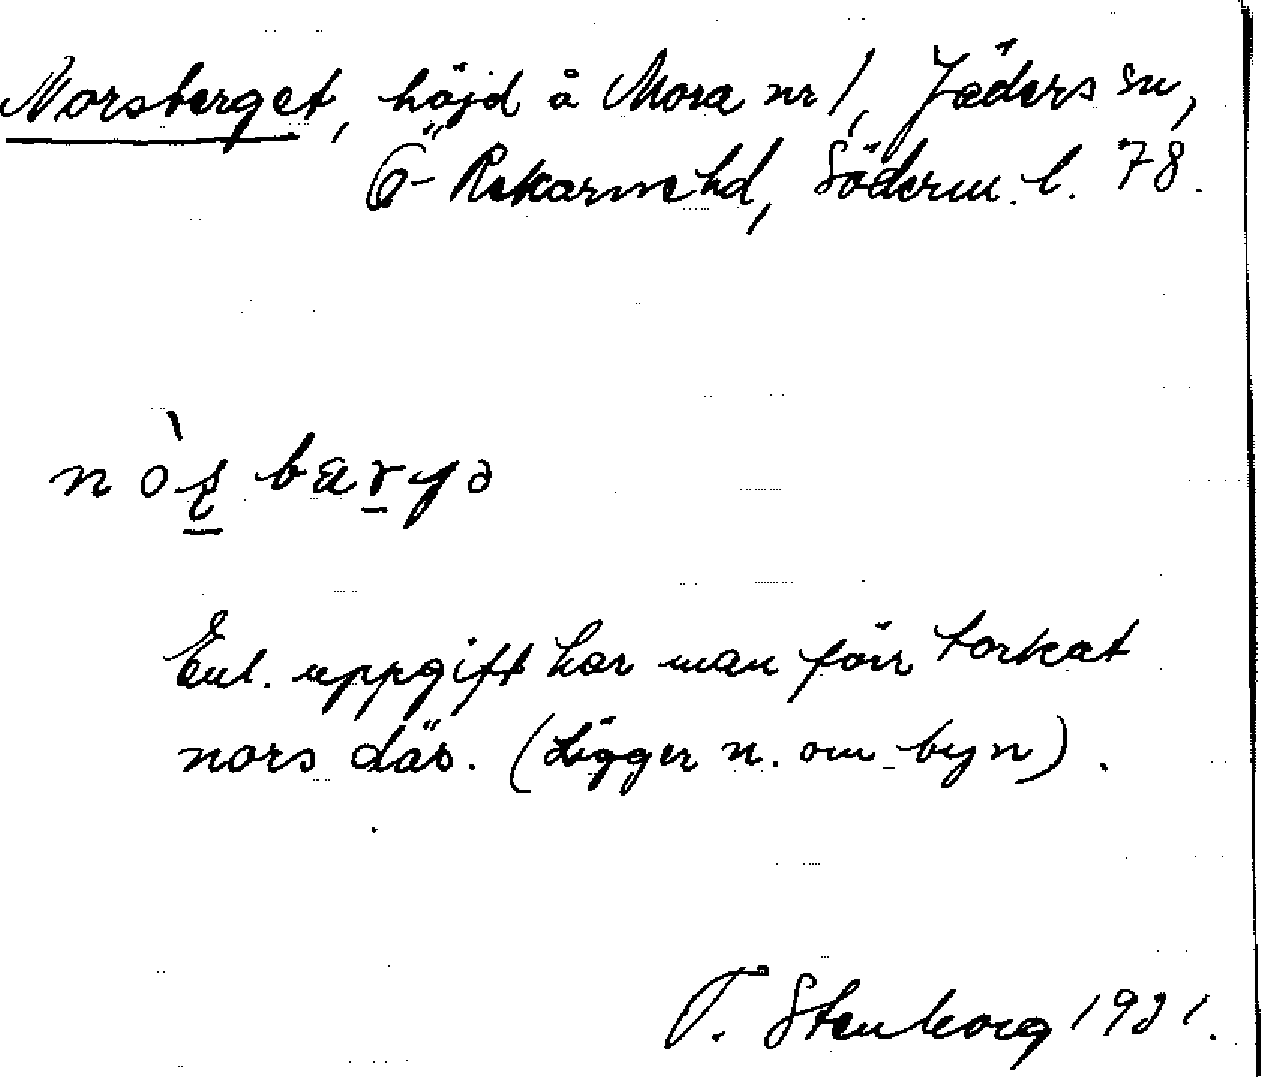 Norsberget, höjd å Mora nr 1, Jäders sn,
Ö-Rekarne hd, Söderm. l. 78.
Enl. uppgift har man förr torkat
nors där. (Ligger n. om byn).
T. Stenborg 1931.